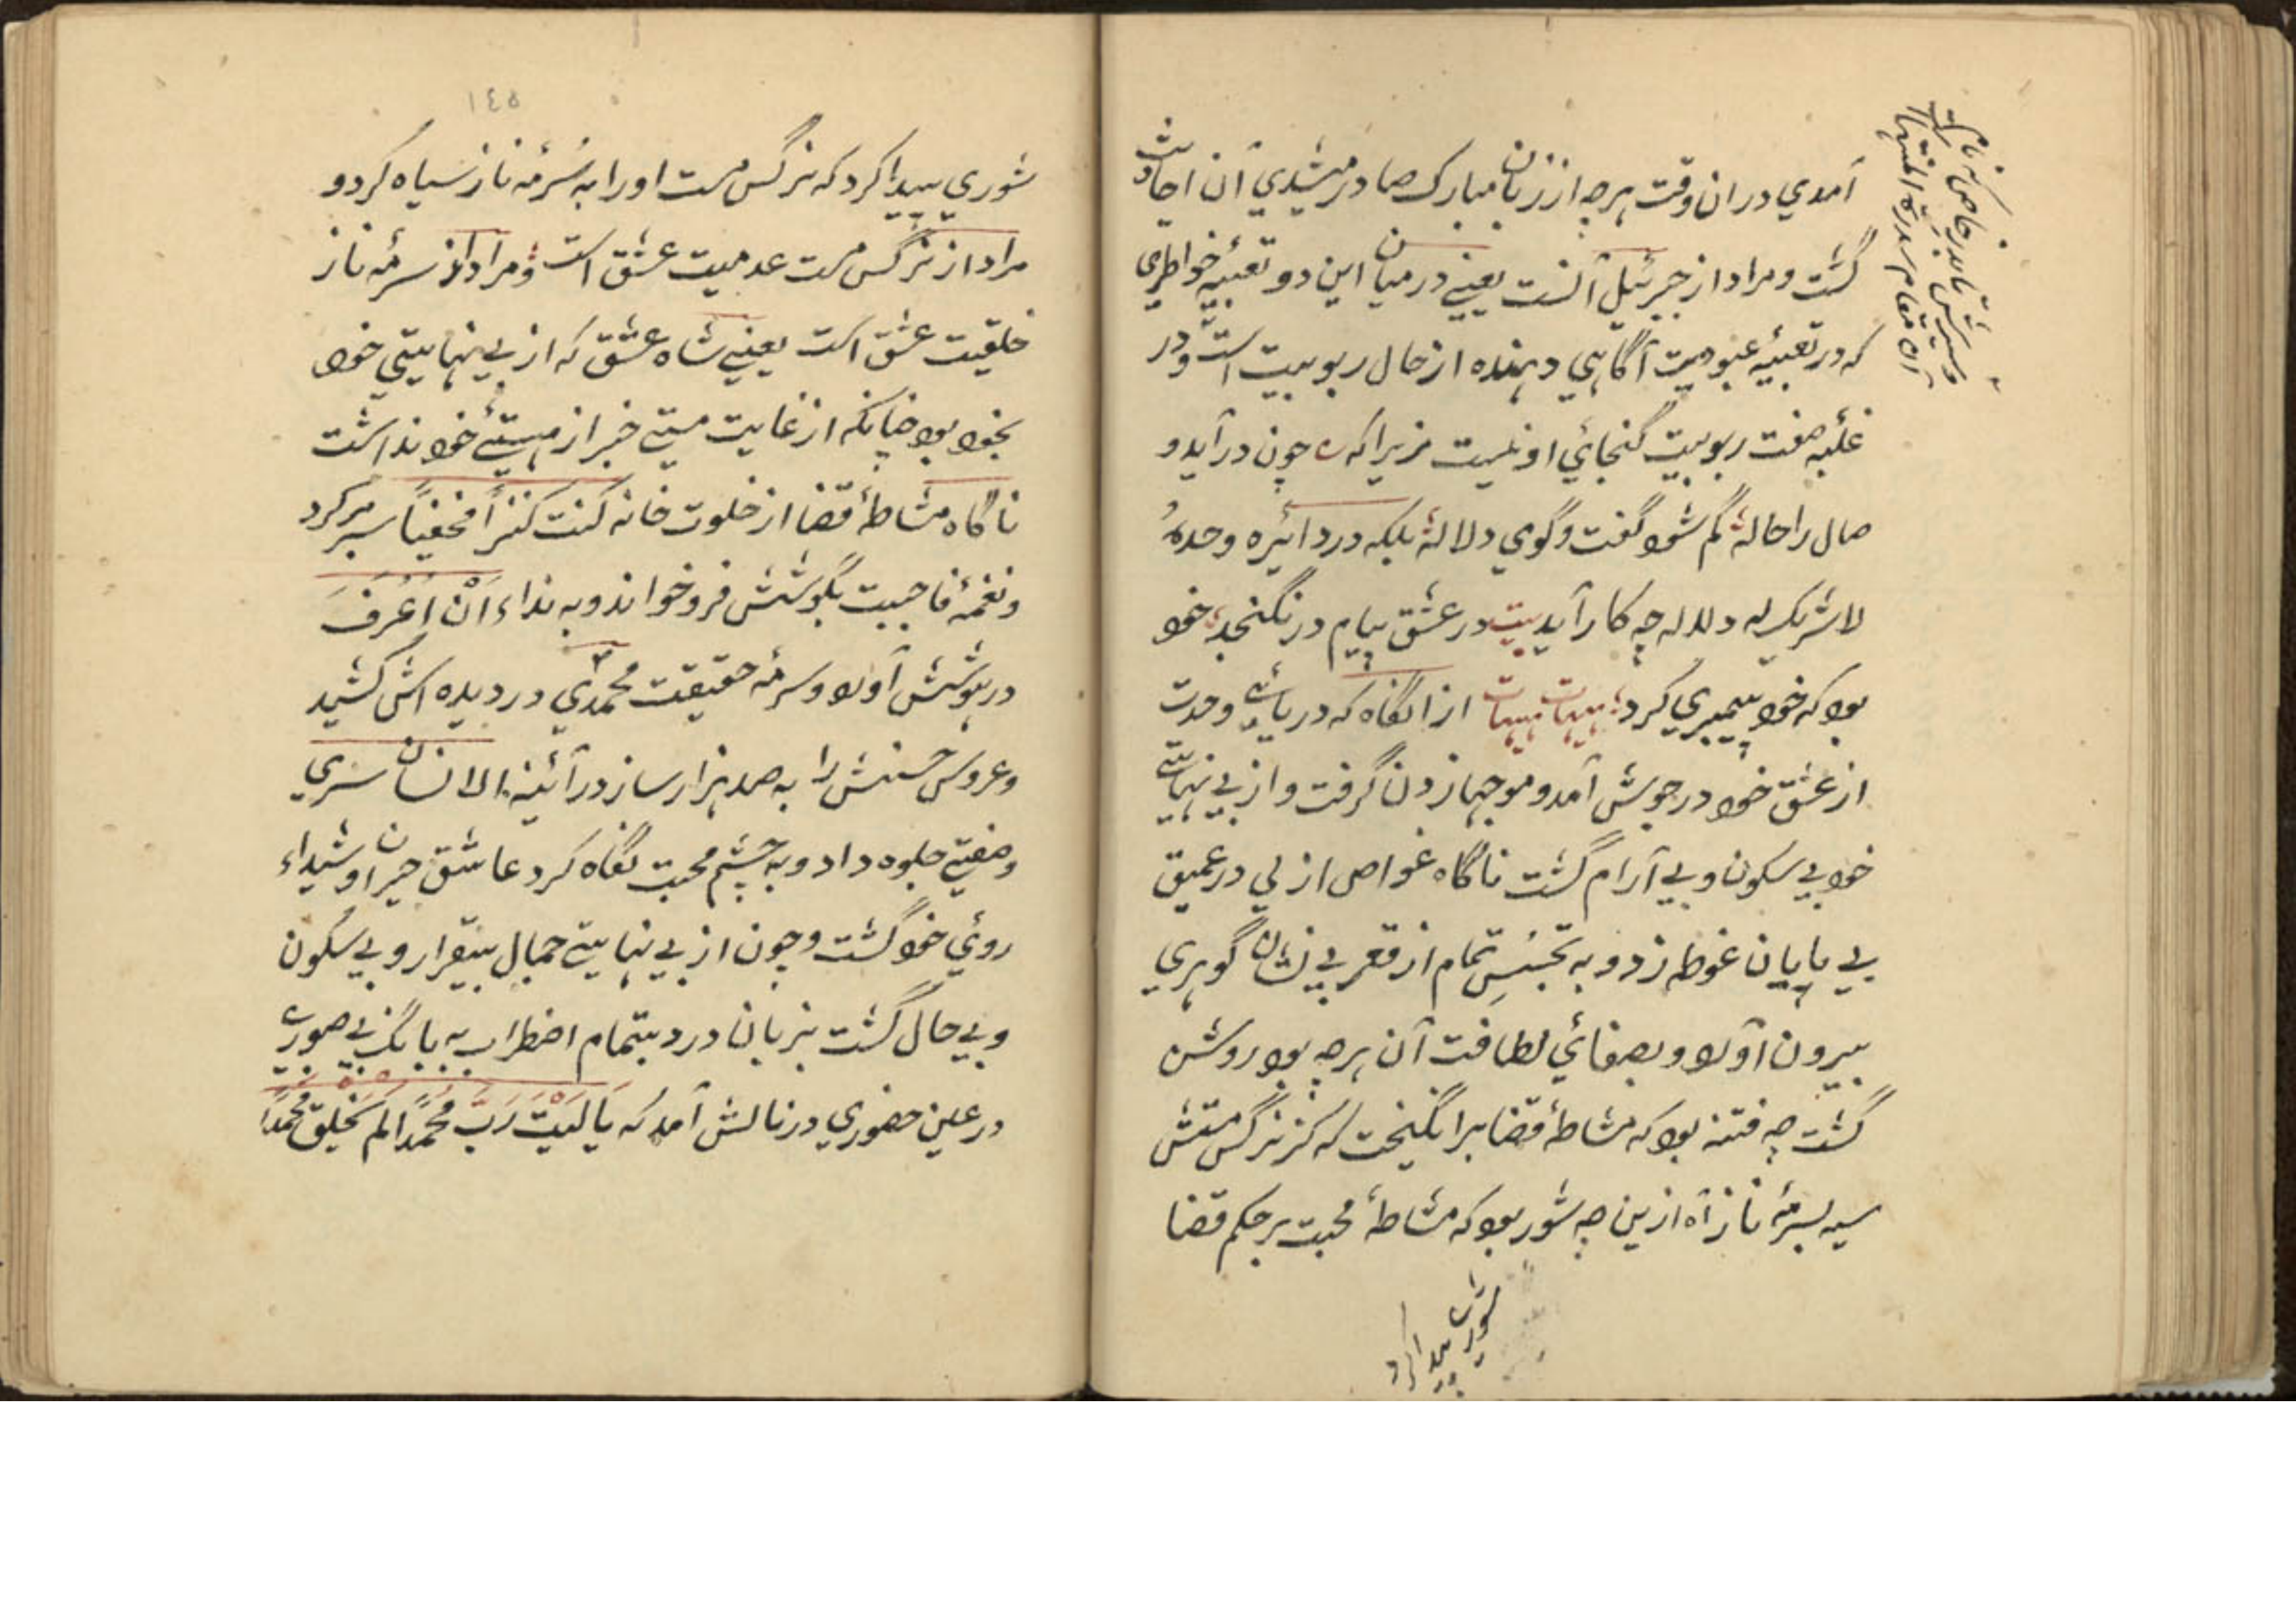 آمدي دران وقت هرچه از زبان مبارک صادر میشدي آن احادیث
گشت و مراد از جبرئیل آنست یعنے درمیان این دو تعبیه خواطري
که در تعبیۀ عبودیت آگاهي دهنده از حال ربوبیت است و در
غلبه صفت ربوبیت گنجائي او نیست زیرا که چون درآید و
صال را حالۀ گم شود گفت وگوي دلالۀ بلکه در دائیره وحدهٗ
لاشریک له دلاله چه کار آید بیت در عشق پیام درنگنجد خود
بود که خود پیمبري کرد هیهات هیهات ازانگاه که دریائے وحدت
از عشق خود در جوش آمد و موجها زدن گرفت و از بے نهایتے
خود بے سکون و بے آرام گشت ناگاه غواص ازلي در عمیق
بے پایان غوطه زد و به تجسّس تمام از قعر بے نشان گوهري
بیرون آورد و بصفائي لطافت آن هرچه بود روشن
گشت چه فتنه بود که مشاطۀ قضا برانگیخت که کز نرگس مستش
سیه بسرمۀ ناز آه ازین چه شور بود که مشاطۀ محبت برحکم قضا
شوري پیدا کرد
١٤٥
شوري پیدا کرد که نرگس مست او را به سُرمۀ ناز سیاه کرد و
مراد از نرگس مست عدمیت عشق است و مراد از سرمۀ ناز
خلقیت عشق است یعنے شاه عشق که از بے نهایتي خود
بخود بود چنانکه از غایت مستے خبر از هستئے خود نداشت
ناگاه مشاطۀ قضا از خلوت خانه کنت کنزاً مخفیاً سر برکرد
و نغمۀ فاحببت بگوشش فروخواند و به نداء اَنْ اُعْرَفَ
در هوشش آورد و سرمۀ حقیقت محمدي در دیده اش کشید
و عروس حسنش را به صد هزار ساز در آئینه الانسان سري
وصفتے جلوه داد و به چشم محبت نگاه کرد عاشق حیران و شیداء
روئي خود گشت و چون از بے نهایتے جمال بیقرار و بے سکون
و بے حال گشت بزبان درد بتمام اضطراب به بانگ بے صورے
در عین حضوري در نالش آمد که یَا لَیْتَ رَبَّ مُحَمَّدًا لم یَخلق مُحَمَّدًا